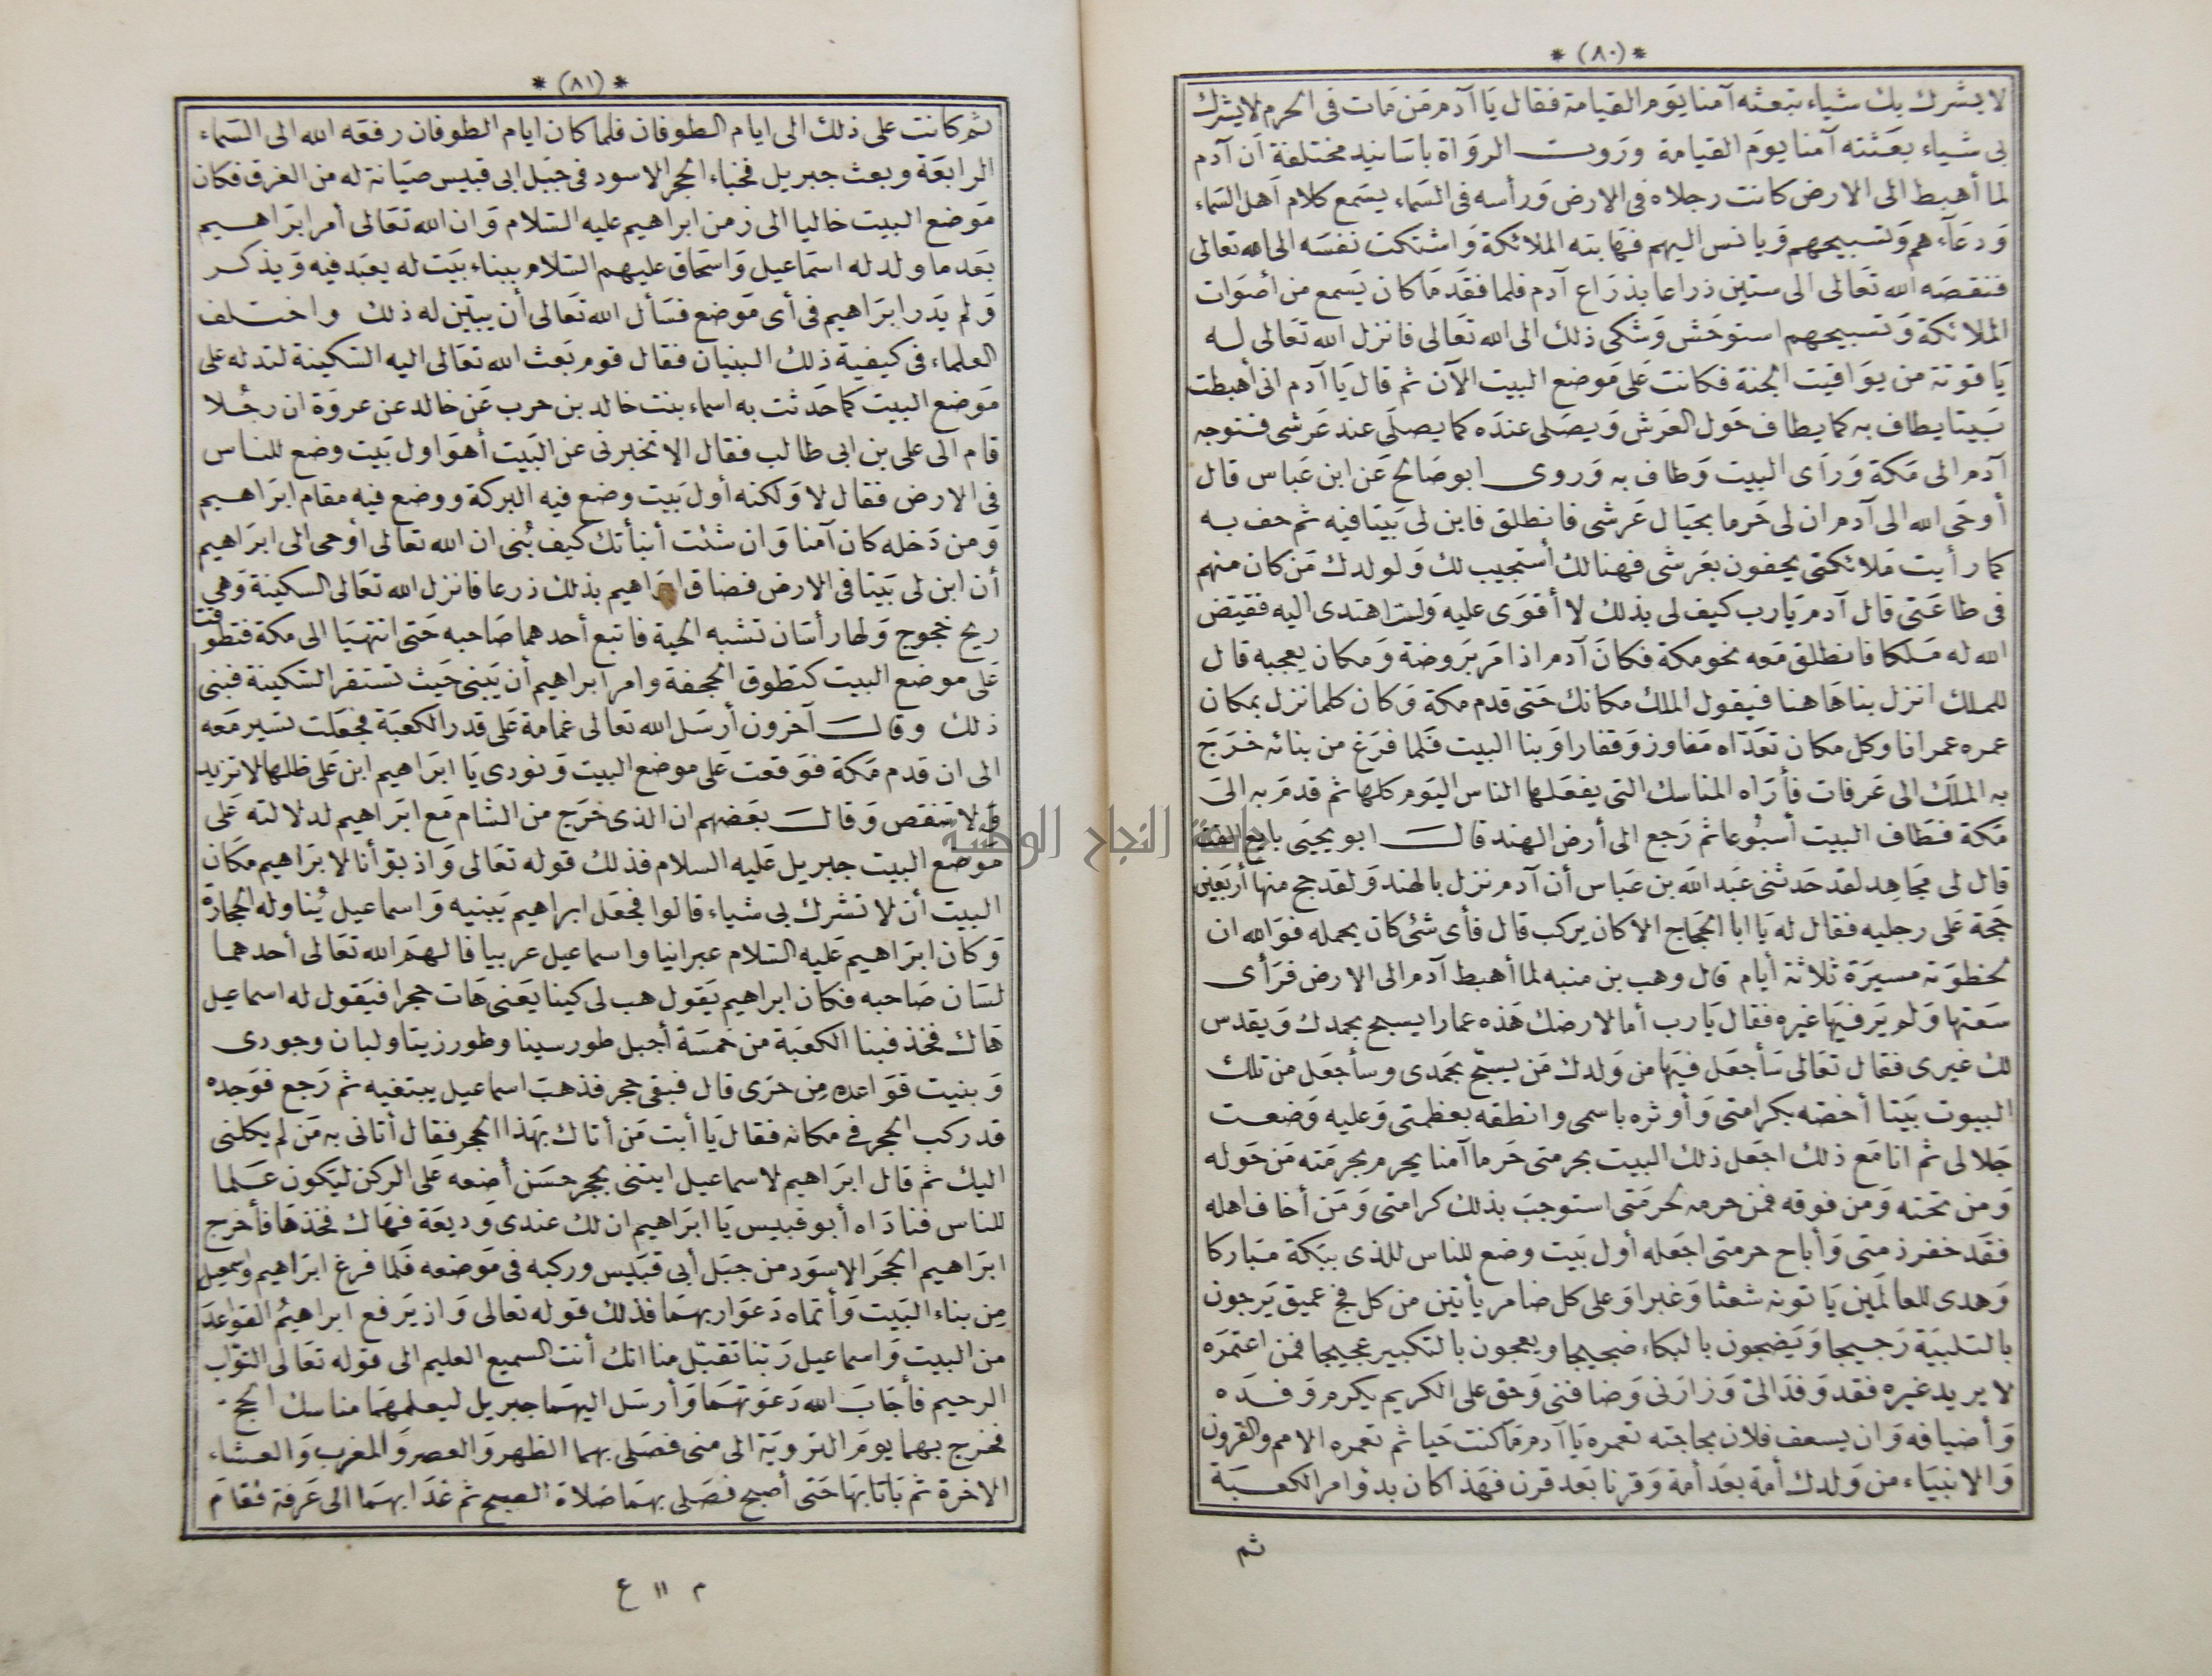 * (٨٠) *
لا يشرك بك شياء تبعثه آمنا يوم القيامة فقال يا آدم من مات فى الحرم لا يشرك
بى شياء بعثته آمنا يوم القيامة وروت الرواة باسانيد مختلفة أن آدم
لما أهبط الى الارض كانت رجلاه فى الارض ورأسه فى السماء يسمع كلام أهل السماء
ودعآءهم وتسبيحهم ويانس اليهم فهابته الملائكة واشتكت نفسه الى الله تعالى
فنقصه الله تعالى الى ستين ذراعا بذراع آدم فلما فقد ما كان يسمع من أصوات
الملائكة وتسبيحهم استوحش وشكى ذلك الى الله تعالى فانزل الله تعالى له
ياقوتة من يواقيت الجنة فكانت على موضع البيت الآن ثم قال يا آدم انى أهبطت
بيتا يطاف به كما يطاف حول العرش ويصلى عنده كما يصلى عند عرشى فتوجه
آدم الى مكة ورأى البيت وطاف به وروى ابو صالح عن ابن عباس قال
أوحى الله الى آدم ان لى حرما بحيال عرشى فانطلق فابن لى بيتا فيه ثم حف به
كما رأيت ملائكتى يحفون بعرشى فهنالك أستجيب لك ولولدك من كان منهم
فى طاعتى قال آدم يا رب كيف لى بذلك لا أقوى عليه ولا اهتدى اليه فقيض
الله له ملكا فانطلق معه نحو مكة فكان آدم اذا مر بروضة ومكان يعجبه قال
للملك انزل بنا هاهنا فيقول الملك مكانك حتى قدم مكة وكان كلما نزل بمكان
عمره عمرانا وكل مكان تعداه مفاوز وقفارا وبنا البيت فلما فرغ من بنائه خرج
به الملك الى عرفات فأراه المناسك التى يفعلها الناس اليوم كلها ثم قدم به الى
مكة فطاف البيت أسبوعا ثم رجع الى أرض الهند قال ابو يحيى بايع القت
قال لى مجاهد لقد حدثنى عبد الله بن عباس أن آدم نزل بالهند ولقد حج منها أربعين
حجة على رجليه فقال له يا ابا الحجاج الا كان يركب قال فأى شئ كان يحمله فوالله ان
لخطوته مسيرة ثلاثة أيام قال وهب بن منبه لما أهبط آدم الى الارض فرأى
سعتها ولم ير فيها غيره فقال يا رب أما لارضك هذه عمارا يسبح بحمدك ويقدس
لك غيرى فقال تعالى سأجعل فيها من ولدك من يسبح بحمدى وسأجعل من تلك
البيوت بيتا أخصه بكرامتى وأوثره باسمى وانطقه بعظمتى وعليه وضعت
جلالى ثم انا مع ذلك اجعل ذلك البيت بحرمتى حرما آمنا يحرم بحرمته من حوله
ومن تحته ومن فوقه فمن حرمه لحرمتى استوجب بذلك كرامتى ومن أخاف اهله
فقد خفر ذمتى وأباح حرمتى اجعله أول بيت وضع للناس للذى ببكة مباركا
وهدى للعالمين ياتونه شعثا وغبرا وعلى كل ضامر يأتين من كل فج عميق يرجون
بالتلبية رجيجا ويضجون بالبكاء ضجيجا ويعجون بالتكبير عجيجا فمن اعتمره
لا يريد غيره فقد وفد الى وزارنى وضافنى وحق على الكريم يكرم وفده
وأضيافه وان يسعف فلان بحاجته تعمره يا آدم ما كنت حيا ثم تعمره الامم والقرون
والانبياء من ولدك أمة بعد أمة وقرنا بعد قرن فهذا كان بدؤ امر الكعبة
ثم
* (٨١) *
ثم كانت على ذلك الى ايام الطوفان فلما كان ايام الطوفان رفعه الله الى السماء
الرابعة وبعث جبريل فخباء الحجر الاسود فى جبل ابى قبيس صيانة له من الغرق فكان
موضع البيت خاليا الى زمن ابراهيم عليه السلام وان الله تعالى أمر ابراهيم
بعد ما ولد له اسماعيل واسحاق عليهم السلام ببناء بيت له يعبد فيه ويذكر
ولم يدر ابراهيم فى أى موضع فسأل الله تعالى أن يبين له ذلك واختلف
العلماء فى كيفية ذلك البنيان فقال قوم بعث الله تعالى اليه السكينة لتدله على
موضع البيت كما حدثت به اسماء بنت خالد بن حرب عن خالد عن عروة ان رجلا
قام الى على بن ابى طالب فقال الا تخبرنى عن البيت أهو اول بيت وضع للناس
فى الارض فقال لا ولكنه أول بيت وضع فيه البركة ووضع فيه مقام ابراهيم
ومن دخله كان آمنا وان شئت أنبأتك كيف بنى ان الله تعالى أوحى الى ابراهيم
أن ابن لى بيتا فى الارض فضاق ابراهيم بذلك ذرعا فانزل الله تعالى السكينة وهى
ريح خجوج ولها رأسان تشبه الحية فاتبع أحدهما صاحبه حتى انتهيا الى مكة فتطوقت
على موضع البيت كتطوق الحجفة وامر ابراهيم أن يبنى حيث تستقر السكينة فبنى
ذلك وقال آخرون أرسل الله تعالى غمامة على قدر الكعبة فجعلت تسير معه
الى ان قدم مكة فوقعت على موضع البيت ونودى يا ابراهيم ابن على ظلها لا تزيد
ولا تنقص وقال بعضهم ان الذى خرج من الشام مع ابراهيم لدلالته على
موضع البيت جبريل عليه السلام فذلك قوله تعالى واذ بوأنا لابراهيم مكان
البيت أن لا تشرك بى شياء قالوا فجعل ابراهيم يبنيه واسماعيل يناوله الحجارة
وكان ابراهيم عليه السلام عبرانيا واسماعيل عربيا فالهم الله تعالى أحدهما
لسان صاحبه فكان ابراهيم يقول هب لى كينا يعنى هات حجرا فيقول له اسماعيل
هاك فخذ فبنا الكعبة من خمسة أجبل طور سينا وطور زيتا ولبنان وجودى
وبنيت قواعده من حرى قال فبقى حجر فذهب اسماعيل يبتغيه ثم رجع فوجده
قد ركب الحجر فى مكانه فقال يا أبت من أتاك بهذا الحجر فقال أتانى به من لم يكلنى
اليك ثم قال ابراهيم لاسماعيل ايتنى بحجر حسن أضعه على الركن ليكون علما
للناس فناداه أبو قبيس يا ابراهيم ان لك عندى وديعة فهاك فخذها فأخرج
ابراهيم الحجر الاسود من جبل أبى قبيس وركبه فى موضعه فلما فرغ ابراهيم واسمعيل
من بناء البيت وأتماه دعوا ربهما فذلك قوله تعالى واذ يرفع ابراهيم القواعد
من البيت واسماعيل ربنا تقبل منا انك أنت السميع العليم الى قوله تعالى التواب
الرحيم فأجاب الله دعوتهما وأرسل اليهما جبريل ليعلمهما مناسك الحج
فخرج بهما يوم التروية الى منى فصلى بهما الظهر والعصر والمغرب والعشاء
الاخرة ثم باتا بها حتى أصبح فصلى بهما صلاة الصبح ثم غدا بهما الى عرفة فقام
م ١١ ع
جامعة النجاح الوطنية